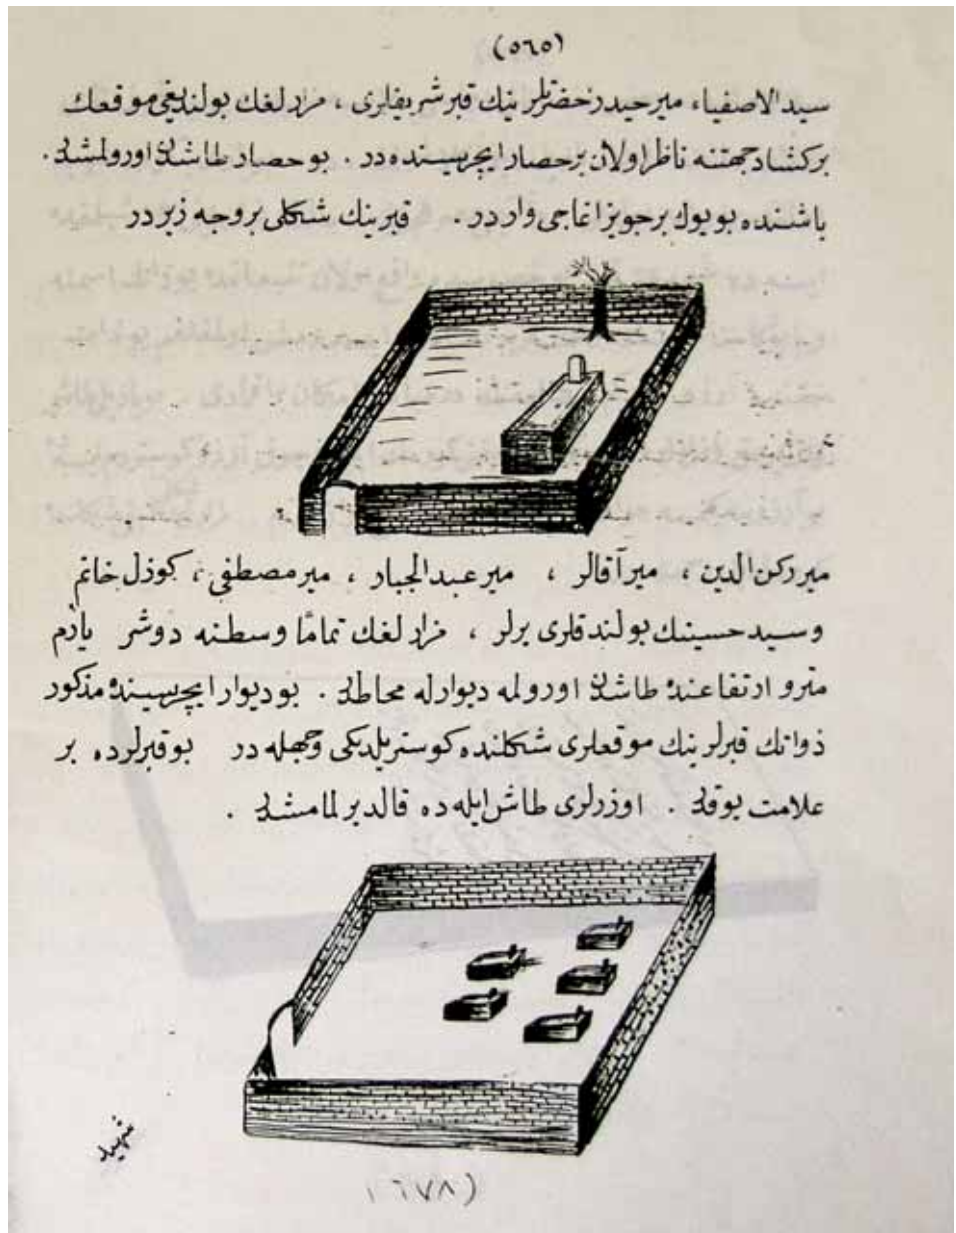 (٥٦٥)
سيد الاصفياء مير حيدر حضرتلرينك قبر شريفلرى ، مزارلغك بولنديغى موقعك
بر كشاد جهتنه ناظر اولان بر حصار ايچريسنده در . بو حصار طاشدن اورولمشدر .
باشنده بويوك بر جويز اغاجى واردر . قبرينك شكلى بر وجه زيردر
مير ركن الدين ، مير آقالر ، مير عبدالجبار ، مير مصطفى ، كوزل خانم
وسيد حسينك بولندقلرى يرلر ، مزارلغك تماماً وسطنه دوشر يارم
مترو ارتفاعنده طاشدن اورولمه ديوارله محاطدر . بو ديوار ايچريسنده مذكور
ذواتك قبرلرينك موقعلرى شكلنده كوستريلديكى وجهله در بو قبرلرده بر
علامت يوقدر . اوزرلرى طاش ايله ده قالديرلمامشدر .
شهيد
(٦٧٨)